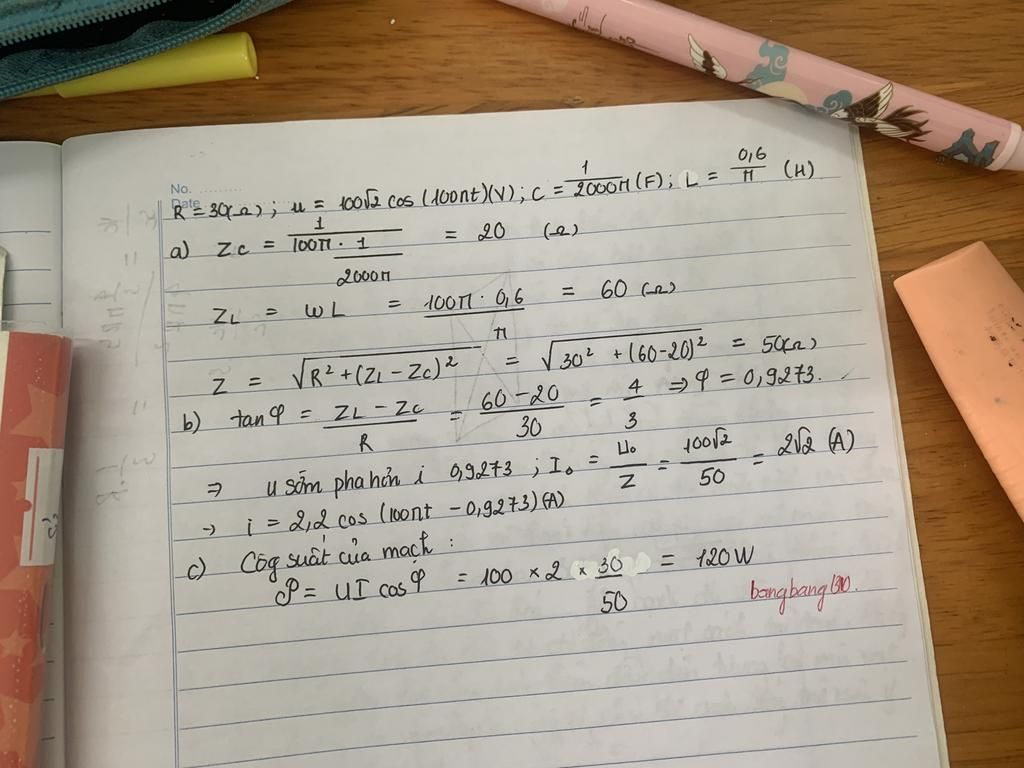 No. ..........
Date
R = 30(Ω) ; u = 100√2 cos (100πt)(V) ; C = 1/2000π (F) ; L = 0,6/π (H)
a) ZC = 1/(100π · 1/2000π) = 20 (Ω)
ZL = ωL = 100π · 0,6/π = 60 (Ω)
Z = √(R² + (ZL – ZC)²) = √(30² + (60-20)²) = 50(Ω)
b) tanφ = (ZL – ZC)/R = (60 – 20)/30 = 4/3 ⇒ φ = 0,9273.
⇒ u sớm pha hơn i 0,9273 ; I₀ = U₀/Z = 100√2/50 = 2√2 (A)
→ i = 2,2 cos (100πt – 0,9273)(A)
c) Côg suất của mạch :
P = UI cosφ = 100 × 2 × 30/50 = 120W